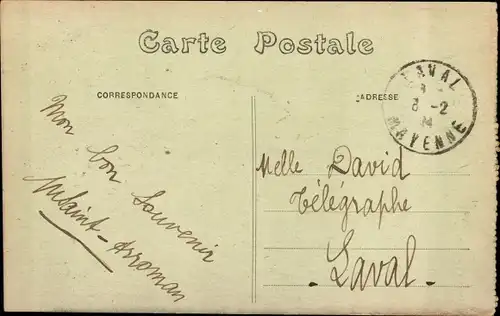 Carte Postale
CORRESPONDANCE
ADRESSE
LAVAL
8-2
MAYENNE
Mon bon souvenir
MSaint-Arroman
Melle David
Télégraphe
Laval.